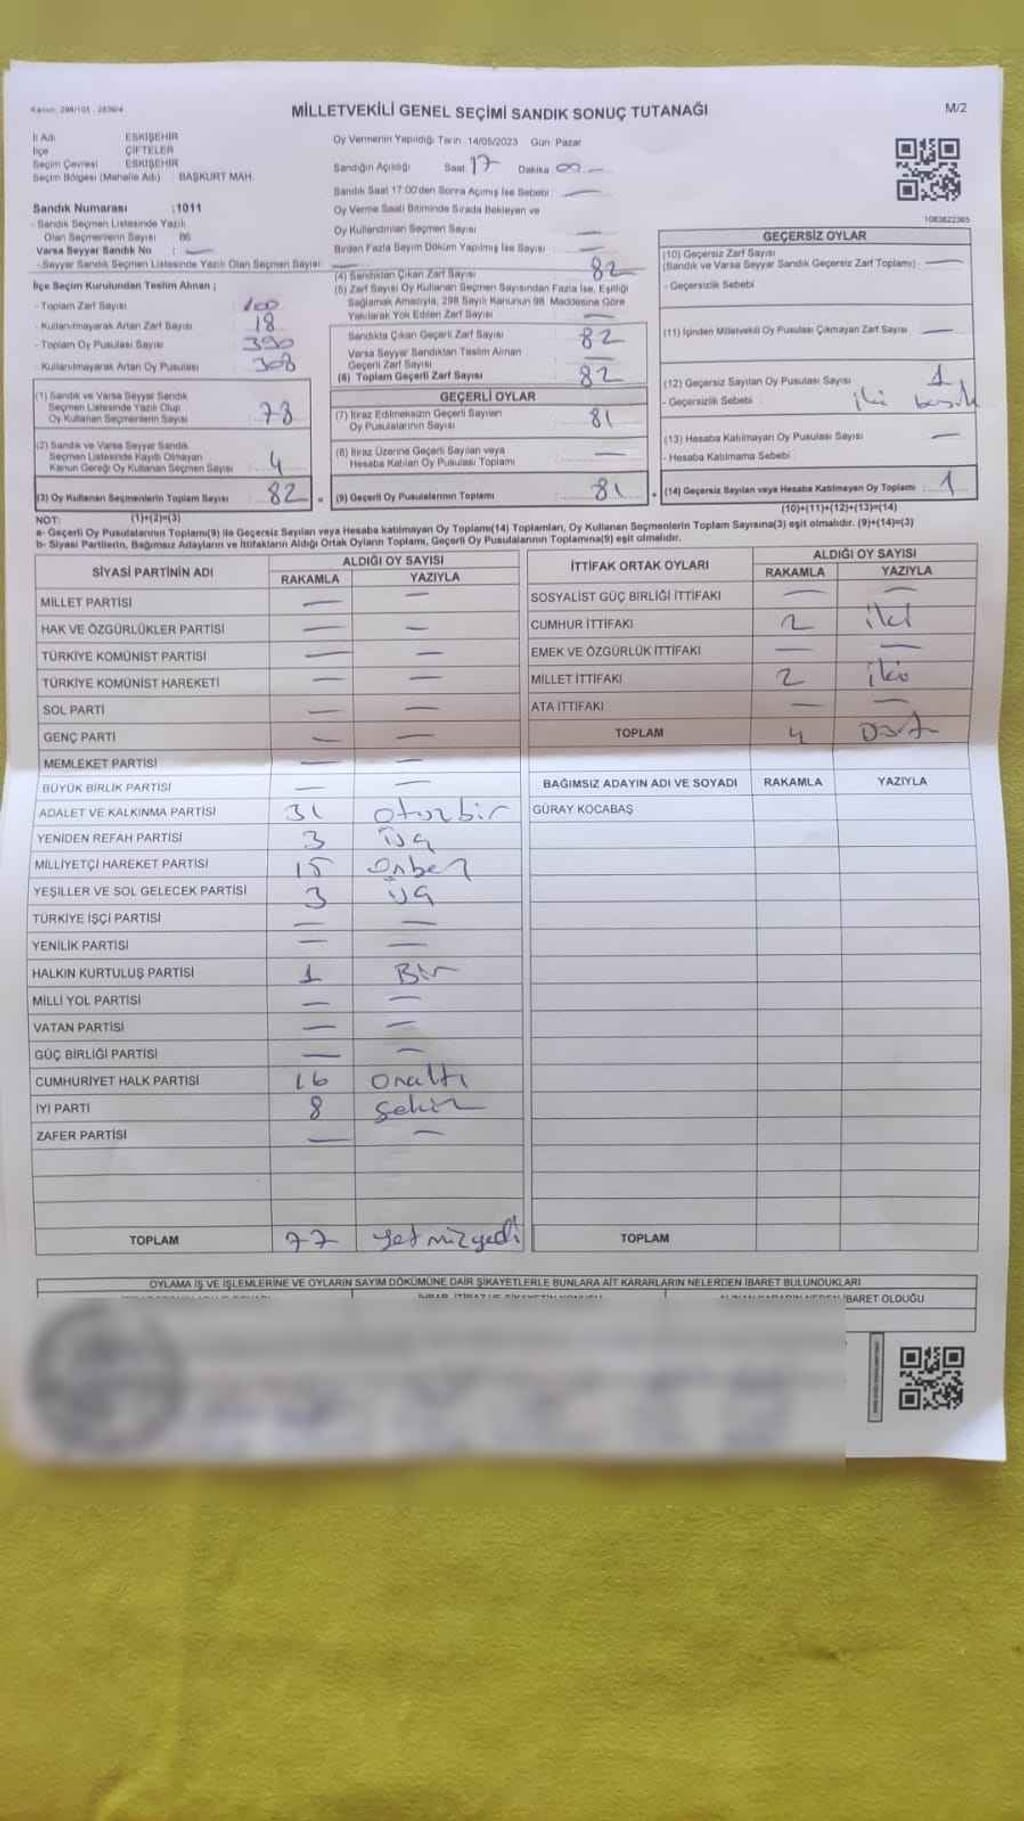 MİLLETVEKİLİ GENEL SEÇİMİ SANDIK SONUÇ TUTANAĞI
M/2
İl Adı ESKİŞEHİR
İlçe ÇİFTELER
Seçim Çevresi ESKİŞEHİR
Seçim Bölgesi (Mahalle Adı) : BAŞKURT MAH.
Sandık Numarası :1011
- Sandık Seçmen Listesinde Yazılı
Olan Seçmenlerin Sayısı 86
Varsa Seyyar Sandık No : —
- Seyyar Sandık Seçmen Listesinde Yazılı Olan Seçmen Sayısı: —
İlçe Seçim Kurulundan Teslim Alınan ;
- Toplam Zarf Sayısı 100
- Kullanılmayarak Artan Zarf Sayısı 18
- Toplam Oy Pusulası Sayısı 390
- Kullanılmayarak Artan Oy Pusulası 308
(1) Sandık ve Varsa Seyyar Sandık
Seçmen Listesinde Yazılı Olup
Oy Kullanan Seçmenlerin Sayısı 78
(2) Sandık ve Varsa Seyyar Sandık
Seçmen Listesinde Kayıtlı Olmayan
Kanun Gereği Oy Kullanan Seçmen Sayısı 4
(3) Oy Kullanan Seçmenlerin Toplam Sayısı 82
(1)+(2)=(3)
Oy Vermenin Yapıldığı Tarih :14/05/2023 Gün: Pazar
Sandığın Açıldığı Saat 17 Dakika 00
Sandık Saat 17:00'den Sonra Açılmış İse Sebebi : —
Oy Verme Saati Bitiminde Sırada Bekleyen ve
Oy Kullandırılan Seçmen Sayısı —
Birden Fazla Sayım Döküm Yapılmış İse Sayısı —
(4) Sandıktan Çıkan Zarf Sayısı 82
(5) Zarf Sayısı Oy Kullanan Seçmen Sayısından Fazla İse, Eşitliği
Sağlamak Amacıyla, 298 Sayılı Kanunun 98. Maddesine Göre
Yakılarak Yok Edilen Zarf Sayısı —
Sandıkta Çıkan Geçerli Zarf Sayısı 82
Varsa Seyyar Sandıktan Teslim Alınan
Geçerli Zarf Sayısı —
(6) Toplam Geçerli Zarf Sayısı 82
GEÇERLİ OYLAR
(7) İtiraz Edilmeksizin Geçerli Sayılan
Oy Pusulalarının Sayısı 81
(8) İtiraz Üzerine Geçerli Sayılan veya
Hesaba Katılan Oy Pusulası Toplamı —
(9) Geçerli Oy Pusulalarının Toplamı 81
1083622365
GEÇERSİZ OYLAR
(10) Geçersiz Zarf Sayısı
(Sandık ve Varsa Seyyar Sandık Geçersiz Zarf Toplamı) —
- Geçersizlik Sebebi
(11) İçinden Milletvekili Oy Pusulası Çıkmayan Zarf Sayısı —
(12) Geçersiz Sayılan Oy Pusulası Sayısı 1
- Geçersizlik Sebebi iki basılı
(13) Hesaba Katılmayan Oy Pusulası Sayısı —
- Hesaba Katılmama Sebebi
(14) Geçersiz Sayılan veya Hesaba Katılmayan Oy Toplamı : 1
(10)+(11)+(12)+(13)=(14)
NOT:
a- Geçerli Oy Pusulalarının Toplamı(9) ile Geçersiz Sayılan veya Hesaba katılmayan Oy Toplamı(14) Toplamları, Oy Kullanan Seçmenlerin Toplam Sayısına(3) eşit olmalıdır. (9)+(14)=(3)
b- Siyasi Partilerin, Bağımsız Adayların ve İttifakların Aldığı Ortak Oyların Toplamı, Geçerli Oy Pusulalarının Toplamına(9) eşit olmalıdır.
SİYASİ PARTİNİN ADI ALDIĞI OY SAYISI
RAKAMLA YAZIYLA
MİLLET PARTİSİ — —
HAK VE ÖZGÜRLÜKLER PARTİSİ — —
TÜRKİYE KOMÜNİST PARTİSİ — —
TÜRKİYE KOMÜNİST HAREKETİ — —
SOL PARTİ — —
GENÇ PARTİ — —
MEMLEKET PARTİSİ — —
BÜYÜK BİRLİK PARTİSİ — —
ADALET VE KALKINMA PARTİSİ 31 otuzbir
YENİDEN REFAH PARTİSİ 3 üç
MİLLİYETÇİ HAREKET PARTİSİ 15 onbeş
YEŞİLLER VE SOL GELECEK PARTİSİ 3 üç
TÜRKİYE İŞÇİ PARTİSİ — —
YENİLİK PARTİSİ — —
HALKIN KURTULUŞ PARTİSİ 1 Bir
MİLLİ YOL PARTİSİ — —
VATAN PARTİSİ — —
GÜÇ BİRLİĞİ PARTİSİ — —
CUMHURİYET HALK PARTİSİ 16 onaltı
İYİ PARTİ 8 sekiz
ZAFER PARTİSİ — —
TOPLAM 77 yetmişyedi
İTTİFAK ORTAK OYLARI ALDIĞI OY SAYISI
RAKAMLA YAZIYLA
SOSYALİST GÜÇ BİRLİĞİ İTTİFAKI — —
CUMHUR İTTİFAKI 2 iki
EMEK VE ÖZGÜRLÜK İTTİFAKI — —
MİLLET İTTİFAKI 2 iki
ATA İTTİFAKI — —
TOPLAM 4 Dört
BAĞIMSIZ ADAYIN ADI VE SOYADI RAKAMLA YAZIYLA
GÜRAY KOCABAŞ
TOPLAM
OYLAMA İŞ VE İŞLEMLERİNE VE OYLARIN SAYIM DÖKÜMÜNE DAİR ŞİKAYETLERLE BUNLARA AİT KARARLARIN NELERDEN İBARET BULUNDUKLARI
İBARET OLDUĞU